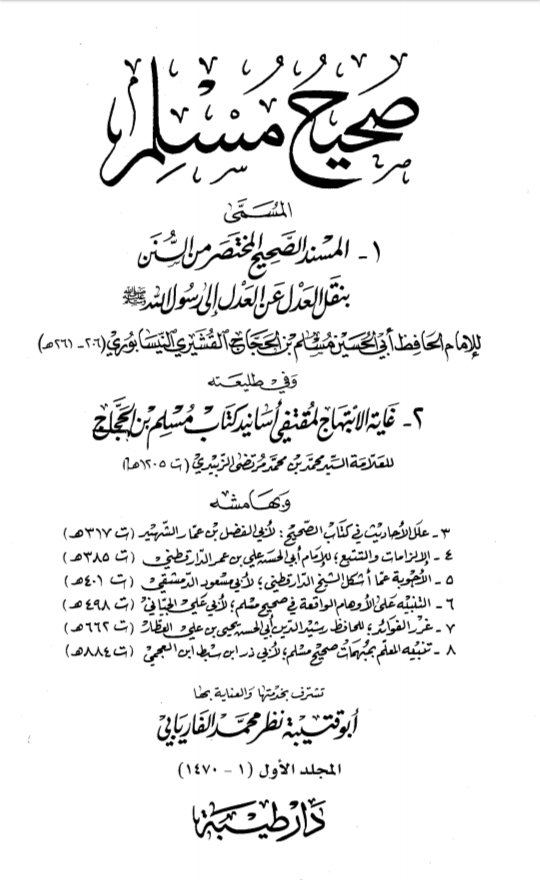 صَحِيحُ مُسْلِم
المُسَمَّى
١- المسند الصحيح المختصر من السُّنن
بنقل العدل عن العدل إلى رسول الله ﷺ
للإمام الحافظ أبي الحسين مسلم بن الحجاج القشيري النيسابوري (٢٠٦ - ٢٦١هـ)
وفي طليعته
٢- غاية الابتهاج لمقتفي أسانيد كتاب مسلم بن الحجاج
للعلامة السيد محمد بن محمد مرتضى الزبيدي (ت ١٢٠٥هـ)
وبهامشه
٣- علل الأحاديث في كتاب الصحيح: لأبي الفضل بن عمار الشهير (ت ٣١٧هـ)
٤- الإلزامات والتتبع؛ للإمام أبي الحسن علي بن عمر الدارقطني (ت ٣٨٥هـ)
٥- الأجوبة عما أشكل الشيخ الدارقطني؛ لأبي مسعود الدمشقي (ت ٤٠١هـ)
٦- التنبيه على الأوهام الواقعة في صحيح مسلم؛ لأبي علي الجياني (ت ٤٩٨هـ)
٧- غرر الفوائد؛ للحافظ رشيد الدين أبي الحسن يحيى بن علي العطار (ت ٦٦٢هـ)
٨- تنبيه المعلم بمبهمات صحيح مسلم؛ لأبي ذر ابن سبط ابن العجمي (ت ٨٨٤هـ)
تشرف بخدمتها والعناية بها
أبو قتيبة نظر محمد الفاريابي
المجلد الأول (١ - ١٤٧٠)
دار طيبة